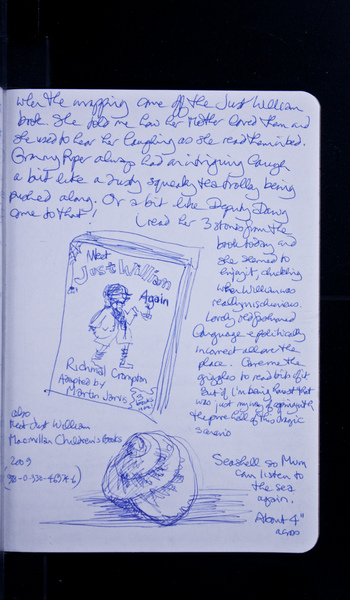 when the wrapping came off the Just William
book. She told me how her Mother loved them and
she used to hear her laughing as she read them in bed.
Granny Piper always had an intriguing laugh
a bit like a rusty squeaky tea trolley being
pushed along. Or a bit like Deputy Dawg
come to that!
I read her 3 stories from the
book today and
she seemed to
enjoy it, chuckling
when William was
really mischievous.
Lovely old fashioned
Language & politically
incorrect all over the
place. Gave me the
giggles to read bits of it
But if I'm being honest that
was just my way of coping with
the pure hell of this tragic
scenario
Meet
Just William
Again
Richmal Crompton
Adapted by
Martin Jarvis
also
Meet Just William
Macmillan Children's Books
2009
Seashell so Mum
can listen to
the sea
again.
About 4"
across